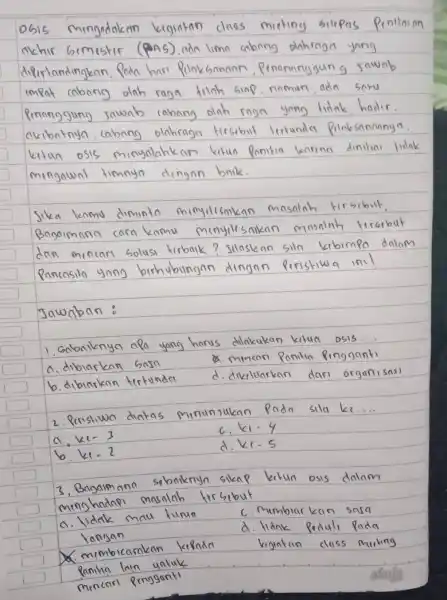 OSIS mengadakan kegiatan class meeting selepas Penilaian
Akhir Semester (PAS), ada lima cabang olahraga yang
dipertandingkan. Pada hari Pelaksanaan, Penanggung jawab
empat cabang olah raga telah siap, namun, ada satu
Penanggung jawab cabang olah raga yang tidak hadir.
akibatnya, cabang olahraga tersebut tertunda Pelaksanaannya.
ketua OSIS menyalahkan ketua Panitia karena dinilai tidak
mengawal timnya dengan baik.
Jika kamu diminta menyelesaikan masalah tersebut,
Bagaimana cara kamu menyelesaikan masalah tersebut
dan mencari solusi terbaik? Jelaskan sila keberapa dalam
Pancasila yang berhubungan dengan Peristiwa ini!
Jawaban :
1. Sebaiknya apa yang harus dilakukan ketua OSIS ...
a. dibiarkan saja c. mencari Panitia Pengganti
b. dibiarkan tertunda d. dikeluarkan dari organisasi
2. Peristiwa diatas menunjukan Pada sila ke ...
a. ke-3 c. ke-4
b. ke-2 d. ke-5
3. Bagaimana sebaiknya sikap ketua osis dalam
menghadapi masalah tersebut
a. tidak mau turun c. membiarkan saja
tangan d. tidak Peduli Pada
membicarakan kepada kegiatan class meeting
Panitia lain untuk
mencari Pengganti